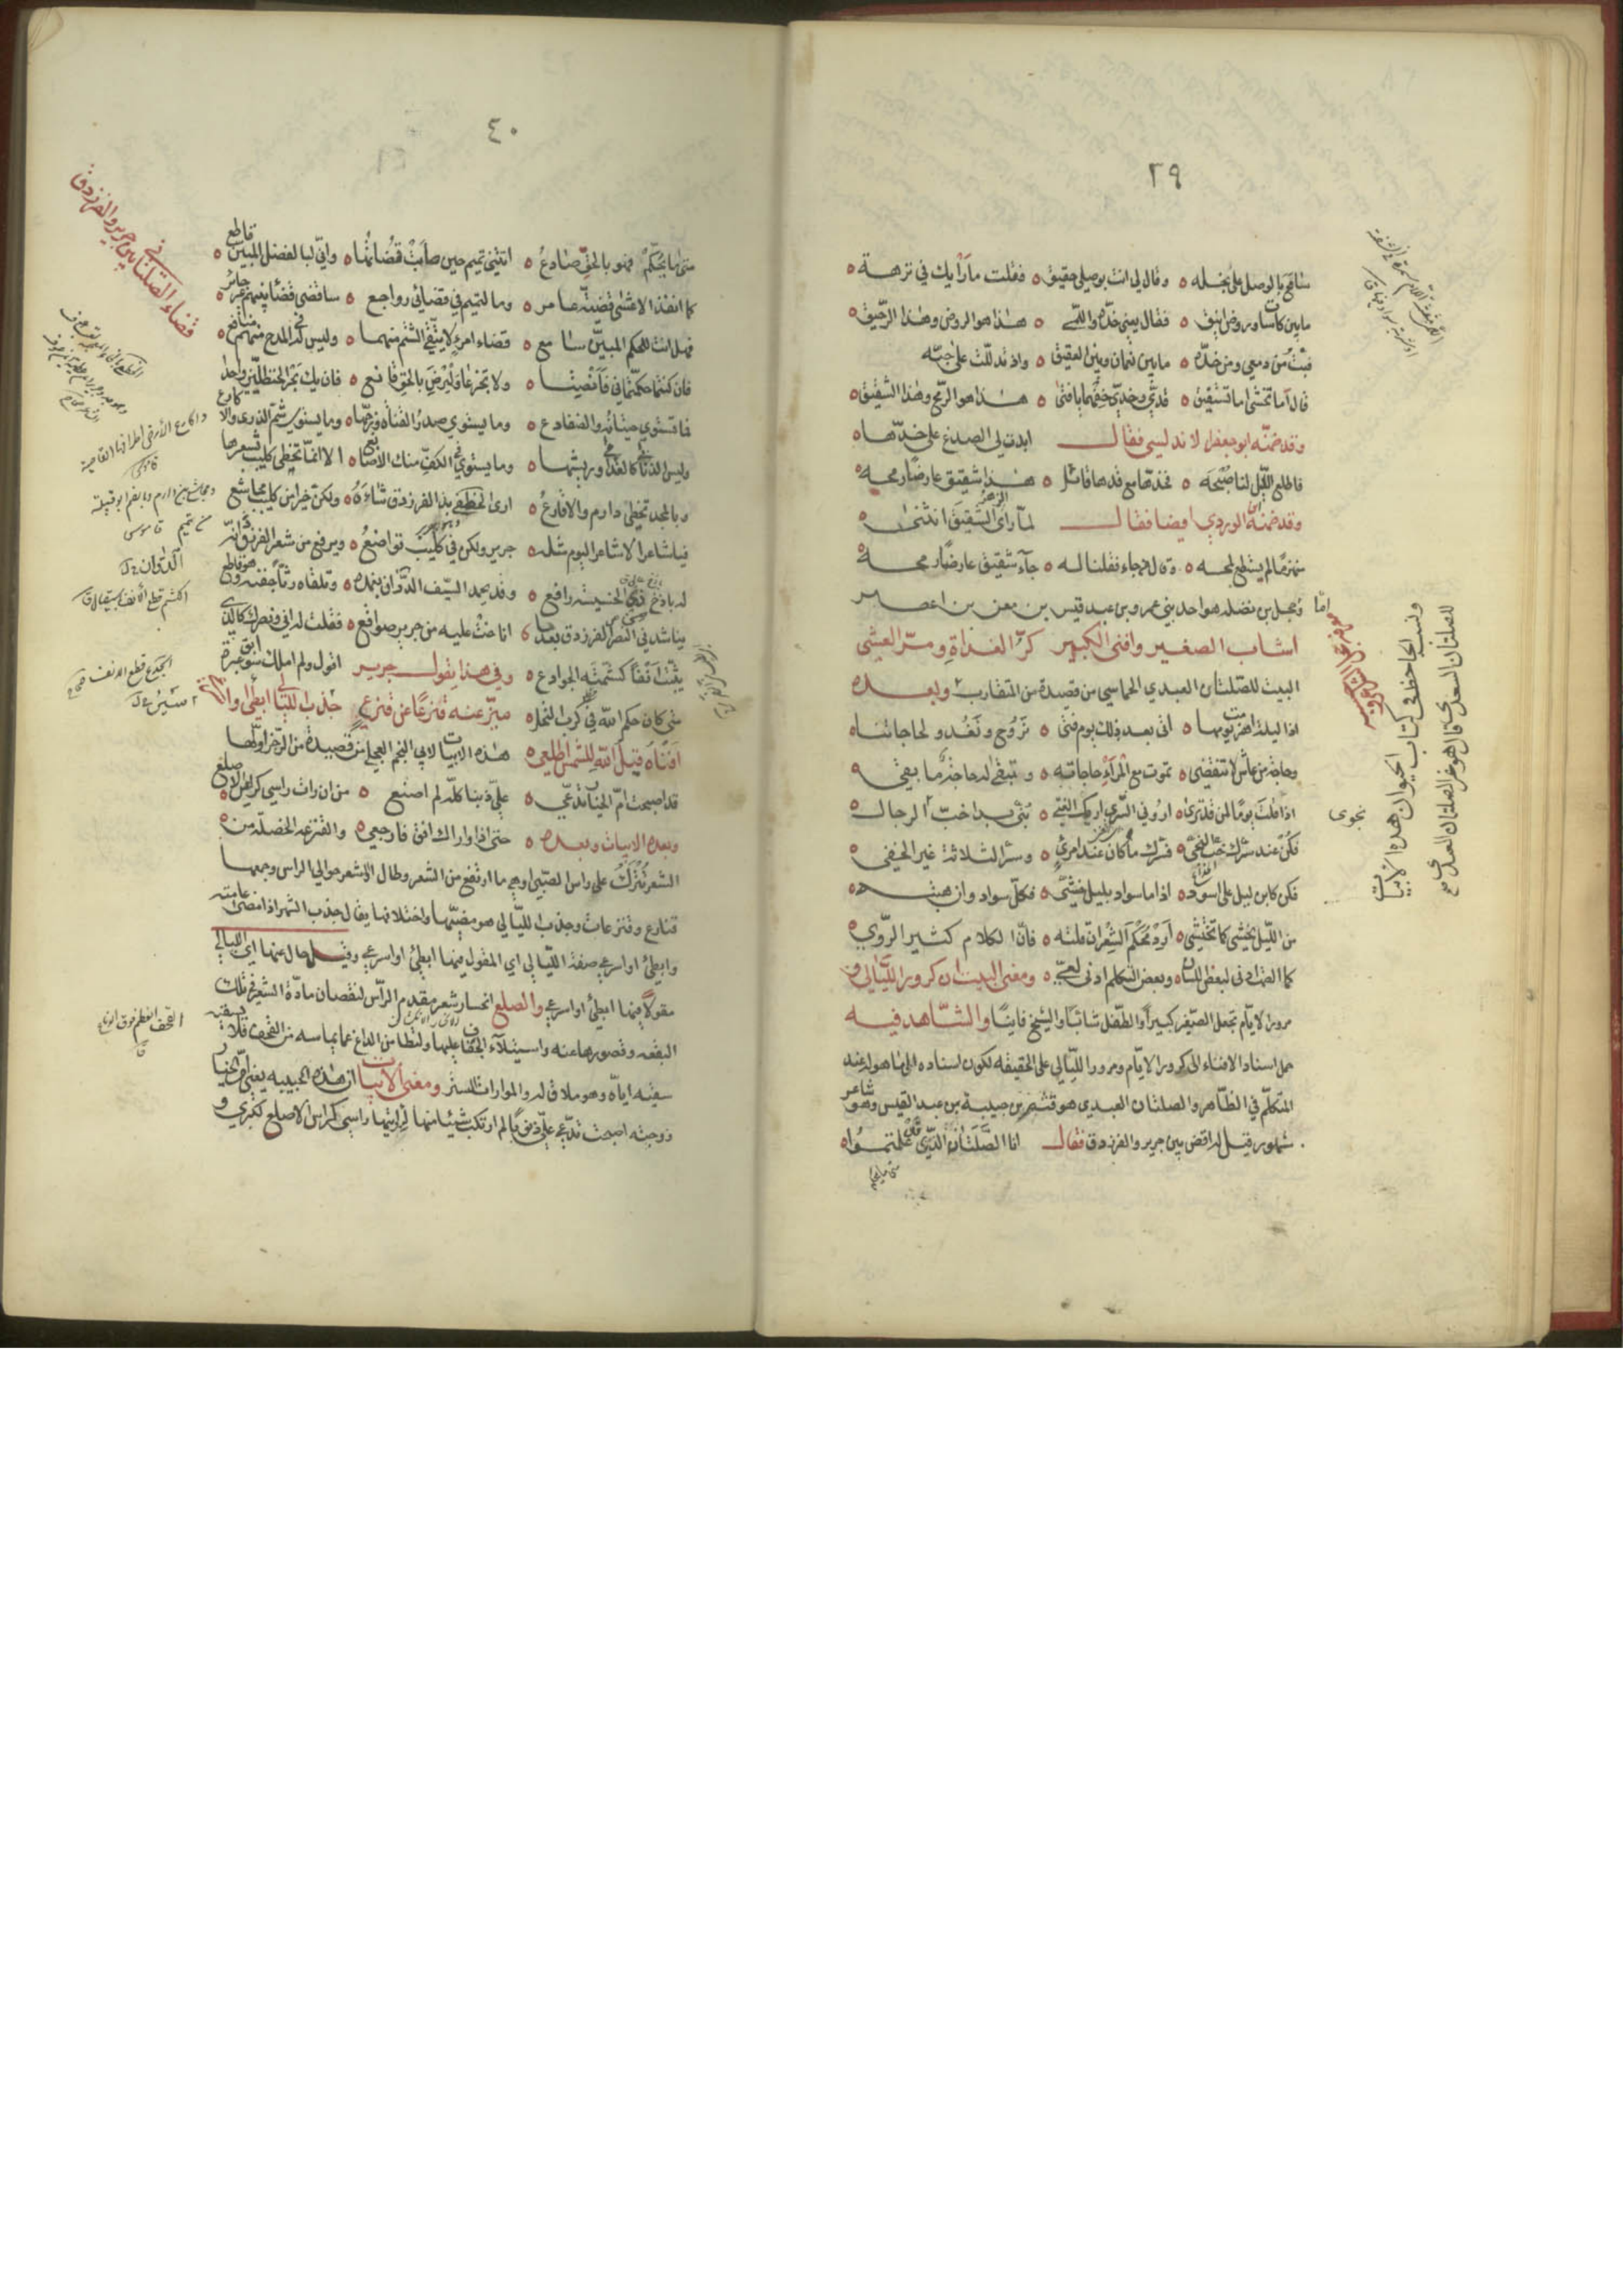 ٢٩
سامح بالوصل على بخله ٥ وقال لي انت بوصلي حقيق ٥ فقلت ما رأيك في نزهة ٥
ما بين كاسات وروض انيق ٥ فقال يعني خده واللمى ٥ هذا هو الروض وهذا الرحيق ٥
فبت من دمعي ومن خده ٥ ما بين نعمان وبين العقيق ٥ واذ تدللت على حبه
قال اما تخشى اما تستفيق ٥ قدي وخدي خفهما يا فتى ٥ هذا هو الرمح وهذا الشقيق ٥
وقد ضمنه ابو جعفر الاندلسي فقال ابدت لي الصدغ على خدها ٥
فاطلع الليل لنا صبحه ٥ فخدها مع قدها قائل ٥ هذا شقيق عارضا رمحه ٥
وقد ضمنه ابن الوردي ايضا فقال لما رأى الزهر الشقيق انثنى ٥
منهزما لم يستطع لمحه ٥ وقال من جاء فقلنا له ٥ جاء شقيق عارضا رمحه ٥
بن نضله هو احد بني عمرو بن عبد قيس بن معن بن اعصر
اشاب الصغير وافنى الكبير كر الغداة ومر العشي
البيت للصلتان العبدي الحماسي من قصيدة من المتقارب وبعده
اذا ليلة اهرمت يومها ٥ اتى بعد ذلك يوم فتي ٥ نروح ونغدو لحاجاتنا ٥
وحاجة من عاش لا تنقضي ٥ تموت مع المرء حاجاته ٥ وتبقى له حاجة ما بقي ٥
اذا قلت يوما لمن قد ترى ٥ اروني السري اروك الغني ٥ بني بدا خب نجوى الرجال ٥
فكن عند سرك خب النجي ٥ فسرك ما كان عند امرئ ٥ وسر الثلاثة غير الخفي ٥
فكن كابن ليل على اسود ٥ اذا ما سواد بليل خشي ٥ فكل سواد وان هبته ٥
من الليل يخشى كما تختشي ٥ ارد محكم الشعر ان قلته ٥ فان الكلام كثير الروي ٥
كما الصمت ادنى لبعض اللسان ٥ وبعض التكلم ادنى لعي ٥ ومعنى البيت ان كرور الليالي و
مرور الايام تجعل الصغير كبيرا والطفل شابا والشيخ فانيا والشاهد فيه
حمل اسناد الافناء الى كرور الايام ومرور الليالي على الحقيقة لكون اسناده الى ما هو له عند
المتكلم في الظاهر والصلتان العبدي هو قثم بن خبيئة من عبد القيس وهو شاعر
مشهور قيل له اقض بين جرير والفرزدق فقال انا الصلتان الذي قد علمتموا ٥
متى ما يحكم
ونسب الجاحظ في كتاب الحيوان هذه الابيات
للصلتان السعدي قال هو غير الصلتان العبدي
٤٠
متى ما يحكم فهو بالحق صادع ٥ اتتني تميم حين هابت قضاتها ٥ واني لبالفصل المبين قاطع ٥
كما انفذ الاعشى قضية عامر ٥ وما لتميم في قضائي رواجع ٥ ساقضي قضاء بينهم غير جائر ٥
فهل انت للحكم المبين سامع ٥ قضاء امرئ لا يتقي الشتم منهما ٥ وليس له في المدح منهم منافع ٥
فان كنتما حكمتماني فانصتا ٥ ولا تجزعا وليرض بالحق قانع ٥ فان يك بحر الحنظليين واحدا
فما تستوي حيتانه والضفادع ٥ وما يستوي صدر القناة وزجها ٥ وما يستوي شم الذرى والاكارع
وليس الذنابى كالقدامى وريشها ٥ وما يستوي في الكف منك الاصابع ٥ الا انما تحظى كليب بشعرها
وبالمجد تحظى دارم والاقارع ٥ ارى الخطفى بذ الفرزدق شأوه ٥ ولكن خيرا من كليب مجاشع
فيا شاعرا لا شاعر اليوم مثله ٥ جرير ولكن في كليب تواضع ٥ ويرفع من شعر الفرزدق انه
له باذخ لذي الخسيسة رافع ٥ وقد يحمد السيف الددان بغمده ٥ وتلقاه رثا جفنه وهو قاطع
يناشدني النصر الفرزدق بعد ما ٥ اناخت عليه من جرير صواقع ٥ فقلت له اني ونصرك كالذي
يثبت انفا كشمته الجوادع ٥ وفي هذا يقول جرير اقول ولم املك سوابق عبرة
متى كان حكم الله في كرب النخل ٥ ميز عنه قنزعا عن قنزع جذب الليالي ابطئي او اسرعي
افناه قيل الله للشمس اطلعي ٥ هذه الابيات لابي النجم العجلي من قصيدة من الرجز اولها
قد اصبحت ام الخيار تدعي ٥ علي ذنبا كله لم اصنع ٥ من ان رات راسي كراس الاصلع ٥
وبعده الابيات وبعده ٥ حتى اذا واراك افق فارجعي ٥ والقنزعه الخصلة من
الشعر تترك على راس الصبي او هي ما ارتفع من الشعر وطال او الشعر حوالي الراس وجمعها
قنازع وقنزعات وجذب الليالي هو مضيها واختلافها يقال جذب الشهر اذا مضى عامته
وابطئ او اسرعي صفة الليالي اي المقول فيها ابطئ او اسرعي وقيل حال عنها اي الليالي
مقولا فيها ابطئ او اسرعي والصلع انحسار شعر مقدم الراس لنقصان مادة الشعر في تلك
البقعه وقصورها عنه واستيلاء الجفاف عليها ولتطامن الدماغ عما يماسه من القحف فلا يسقيه
سقيه اياه وهو ملاق له والموارات الستر ومعنى الابيات ان هذه الحبيبه يعني ام الخيار
زوجته اصبحت تدعي علي ذنوبا لم ارتكب شيئا منها لرؤيتها راسي كراس الاصلع لكبري و
قضاء الصلتان في جرير والفرزدق
واكارع الارض اطرافها القاصية
قاموس
الجدع قطع الانف
القحف العظم فوق الدماغ